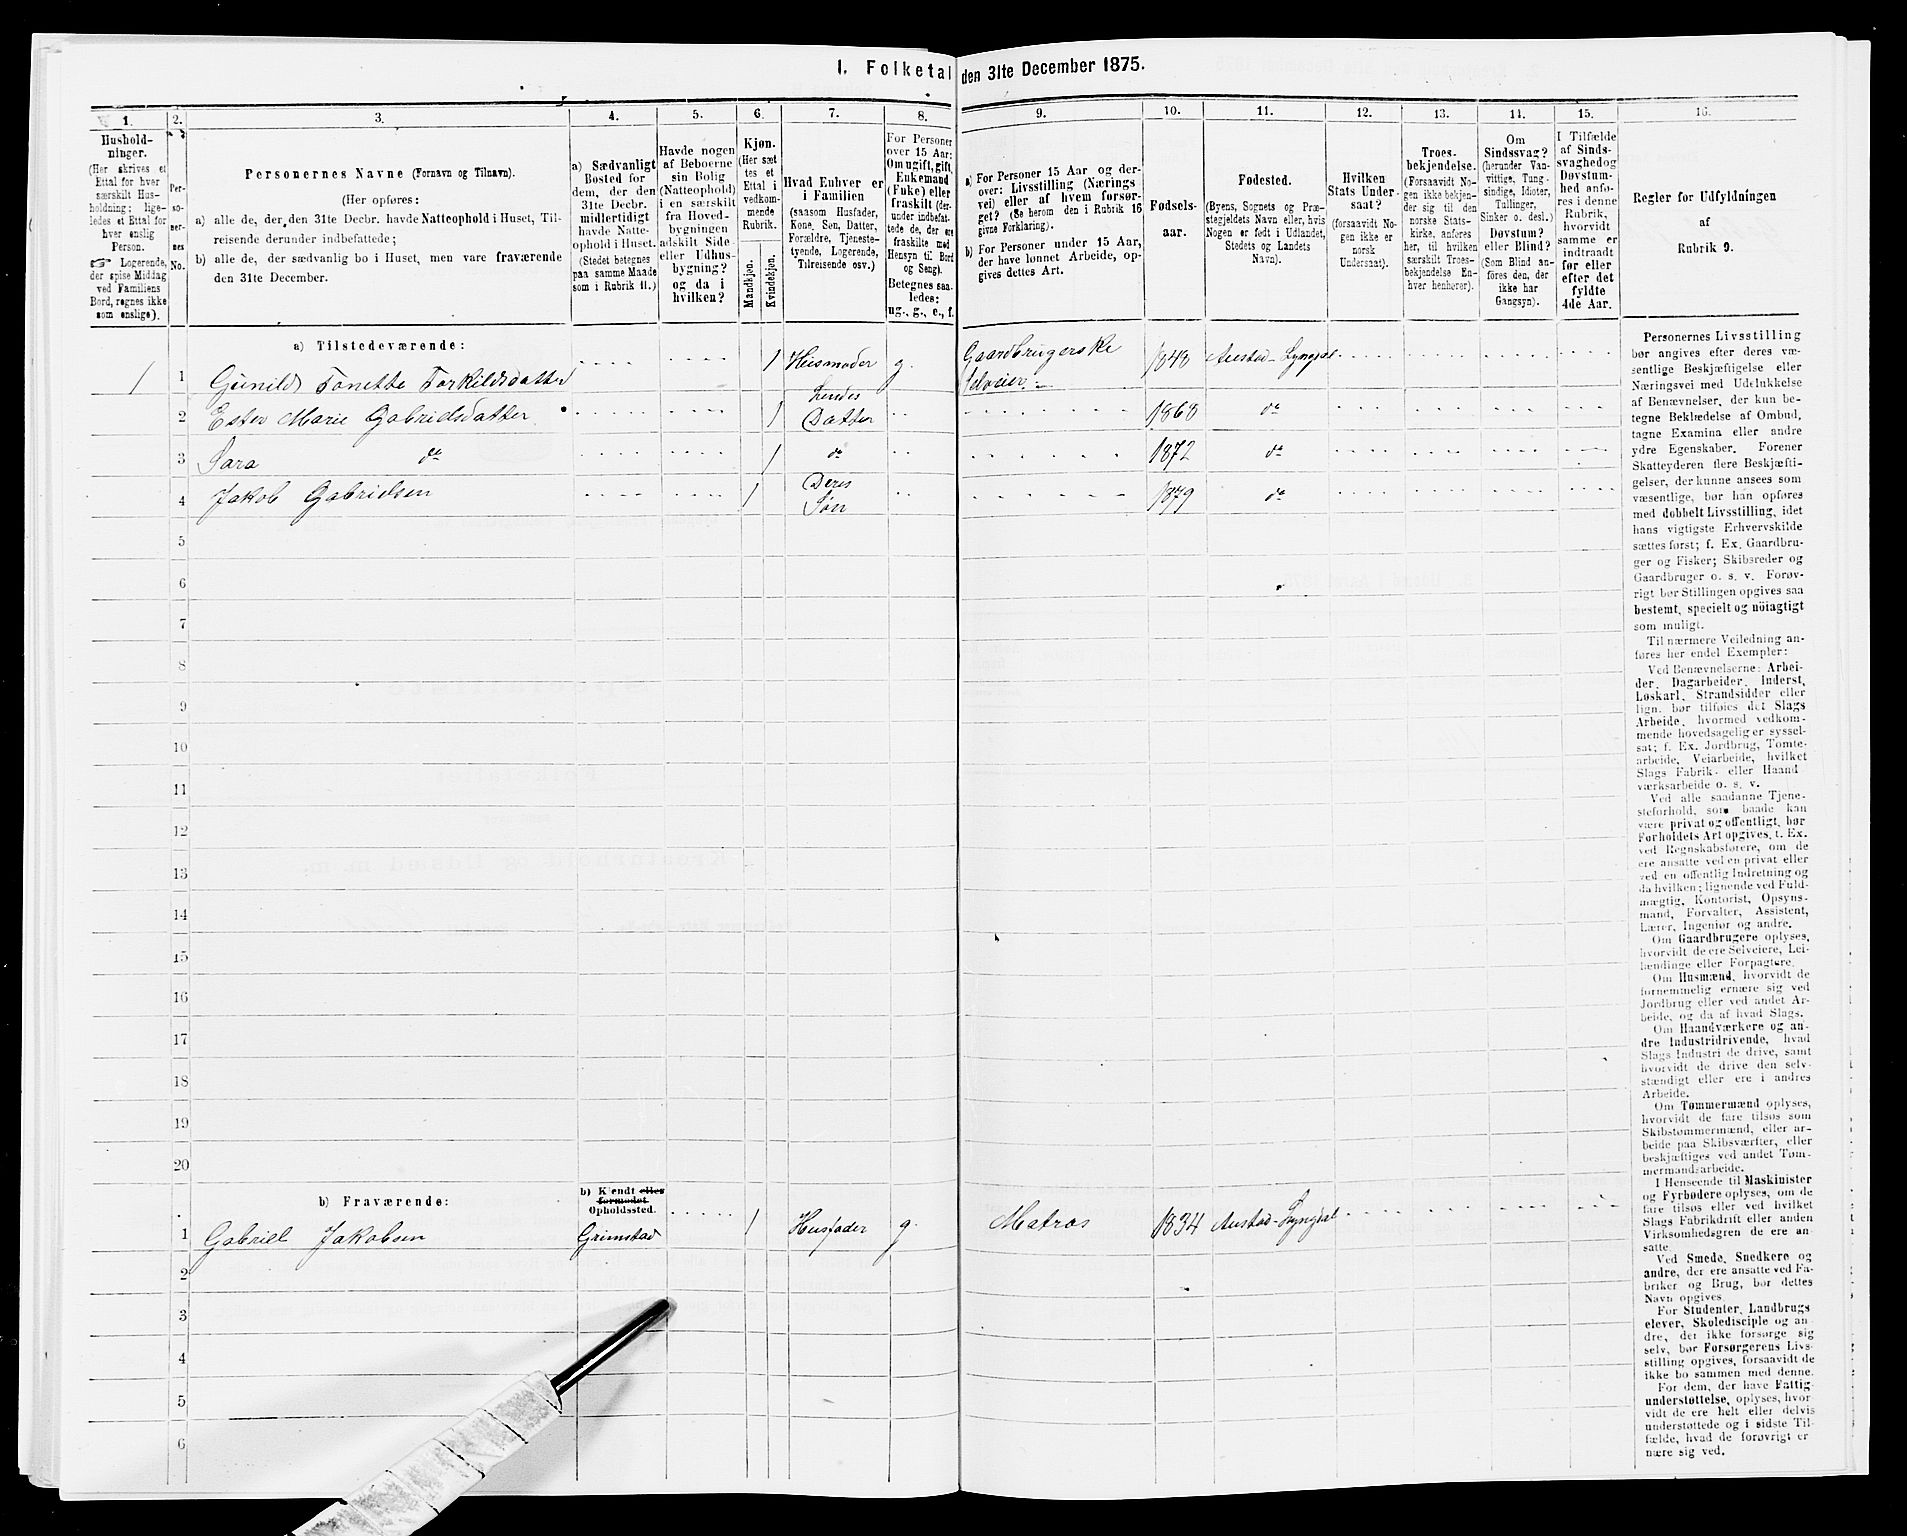 I. Folketal den 31te December 1875.
1. 2. 3. 4. 5. 6. 7. 8. 9. 10. 11. 12. 13. 14. 15. 16.
Hushold-
ninger.
(Her skrives et
Ettal for hver
særskilt Hus-
holdning; lige-
ledes et Ettal for
hver enslig
Person.
☞ Logerende,
der spise Middag
ved Familiens
Bord, regnes ikke
som enslige).
Per-
so-
ner-
nes
No.
Personernes Navne (Fornavn og Tilnavn).
(Her opføres:
a) alle de, der den 31te Decbr. havde Natteophold i Huset, Til-
reisende derunder indbefattede;
b) alle de, der sædvanlig bo i Huset, men vare fraværende
den 31te December.
a) Sædvanligt
Bosted for
dem, der den
31te Decbr.
midlertidigt
havde Natte-
ophold i Huset.
(Stedet betegnes
paa samme Maade
som i Rubrik 11.)
Havde nogen
af Beboerne
sin Bolig
(Natteophold)
i en særskilt
fra Hoved-
bygningen
adskilt Side-
eller Udhus-
bygning?
og da i
hvilken?
Kjøn.
(Her sæt
tes et
Ettal i
vedkom-
mende
Rubrik.
Mandkjøn.
Kvindekjøn.
Hvad Enhver er
i Familien
(saasom Husfader,
Kone, Søn, Datter,
Forældre, Tjeneste-
tyende, Logerende,
Tilreisende osv.)
For Personer
over 15 Aar;
Om ugift, gift,
Enkemand
(Fuke) eller
fraskilt (der-
under indbefat-
tede de, der ere
fraskilte med
Hensyn til Bord
og Seng).
Betegnes saa-
ledes:
ug., g., e., f.
a) For Personer 15 Aar og der-
over: Livsstilling (Nærings
vei) eller af hvem forsør-
get? (Se herom den i Rubrik 16
givne Forklaring).
b) For Personer under 15 Aar,
der have lønnet Arbeide, op-
gives dettes Art.
Fødsels-
aar.
Fødested.
(Byens, Sognets og Præ-
stegjeldets Navn eller, hvis
Nogen er født i Udlandet,
Stedets og Landets
Navn).
Hvilken
Stats Under-
saat?
(forsaavidt No-
gen ikke er
norsk
Undersaat).
Troes-
bekjendelse.
(Forsaavidt No-
gen ikke bekjen-
der sig til den
norske Stats-
kirke, anføres
her, til hvilken
særskilt Troes-
bekjendelse En-
hver henhører).
Om
Sindssvag?
(herunder Van-
vittige, Tung-
sindige, Idioter,
Tullinger,
Sinker o. desl.)
Døvstum?
eller Blind?
(Som Blind an-
føres den, der
ikke har
Gangsyn).
I Tilfælde
af Sinds-
svaghedog
Døvstum-
hed anfø-
res i denne
Rubrik,
hvorvidt
samme er
indtraadt
før eller
efter det
fyldte
4de Aar.
Regler for Udfyldningen
af
Rubrik 9.
a) Tilstedeværende:
1 1 Gunild Tonette Torkildsdatter 1 Husmoder g. Gaardbrugerske Selveier 1848 Austad-Lyngdal
2 Ester Marie Gabrielsdatter 1 hendes Datter 1868 do
3 Sara do 1 do 1872 do
4 Jakob Gabrielsen 1 Deres Søn 1879 do
5
6
7
8
9
10
11
12
13
14
15
16
17
18
19
20
b) Fraværende:
b) Kjendt eller
formodet
Opholdssted.
1 Gabriel Jakobsen Grimstad 1 Husfader g. Matros 1834 Austad-Lyngdal
2
3
4
5
6
Personernes Livsstilling
bør angives efter deres væ-
sentlige Beskjæftigelse eller
Næringsvei med Udelukkelse
af Benævnelser, der kun be-
tegne Beklædelse af Ombud,
tagne Examina eller andre
ydre Egenskaber. Forener
Skatteyderen flere Beskjæfti-
gelser, der kunne ansees som
væsentlige, bør han opføres
med dobbelt Livsstilling, idet
hans vigtigste Erhvervskilde
sættes først; f. Ex. Gaardbru-
ger og Fisker; Skibsreder og
Gaardbruger o. s. v. Forøv-
rigt bør Stillingen opgives saa
bestemt, specielt og nöiagtigt
som muligt.
Til nærmere Veiledning an-
føres her endel Exempler:
Ved Benævnelserne: Arbei-
der, Dagarbeider, Inderst,
Løskarl, Strandsidder eller
lign. bør tilføies det Slags
Arbeide, hvormed vedkom-
mende hovedsagelig er syssel-
sat; f. Ex. Jordbrug, Tomte-
arbeide, Veiarbeide, hvilket
Slags Fabrik- eller Haand
værksarbeide o. s. v.
Ved alle saadanne Tjene-
steforhold, som baade kan
være privat og offentligt, bør
Forholdets Art opgives, t. Ex.
ved Regnskabsførere, om de
ere ansatte ved en privat eller
ved en offentlig Indretning og
da hvilken; lignende ved Fuld-
mægtig, Kontorist, Opsyns-
mand, Forvalter, Assistent,
Lærer, Ingeniør og andre.
Om Gaardbrugere oplyses,
hvorvidt de ere Selveiere, Lei-
lændinge eller Forpagtere.
Om Husmænd, hvorvidt de
fornemmelig ernære sig ved
Jordbrug eller ved andet Ar-
beide, og da af hvad Slags.
Om Haandværkere og an-
dre Industridrivende, hvad
Slags Industri de drive, samt
hvorvidt de drive den selv-
stændigt eller ere i andres
Arbeide.
Om Tømmermænd oplyses,
hvorvidt de fare tilsøs som
Skibstømmermænd, eller ar-
beide paa Skibsværfter, eller
beskjæftiges ved andet Tøm-
mermandsarbeide.
I Henseende til Maskinister
og Fyrbødere oplyses, om de
fare tilsøs eller ved hvilket
Slags Fabrikdrift eller anden
Virksomhedsgren de ere an-
satte.
Ved Smede, Snedkere og
andre, der ere ansatte ved Fa-
briker og Brug, bør dettes
Navn opgives.
For Studenter, Landbrugs
elever, Skoledisciple og an-
dre, der ikke forsørge sig
selv, bør Forsørgerens Livs-
stilling opgives, forsaavidt de
ikke bo sammen med denne.
For dem, der have Fattig-
understøttelse, oplyses, hvor-
vidt de ere helt eller delvis
understøttede og i sidste Til-
fælde, hvad de forøvrigt er
nære sig ved.